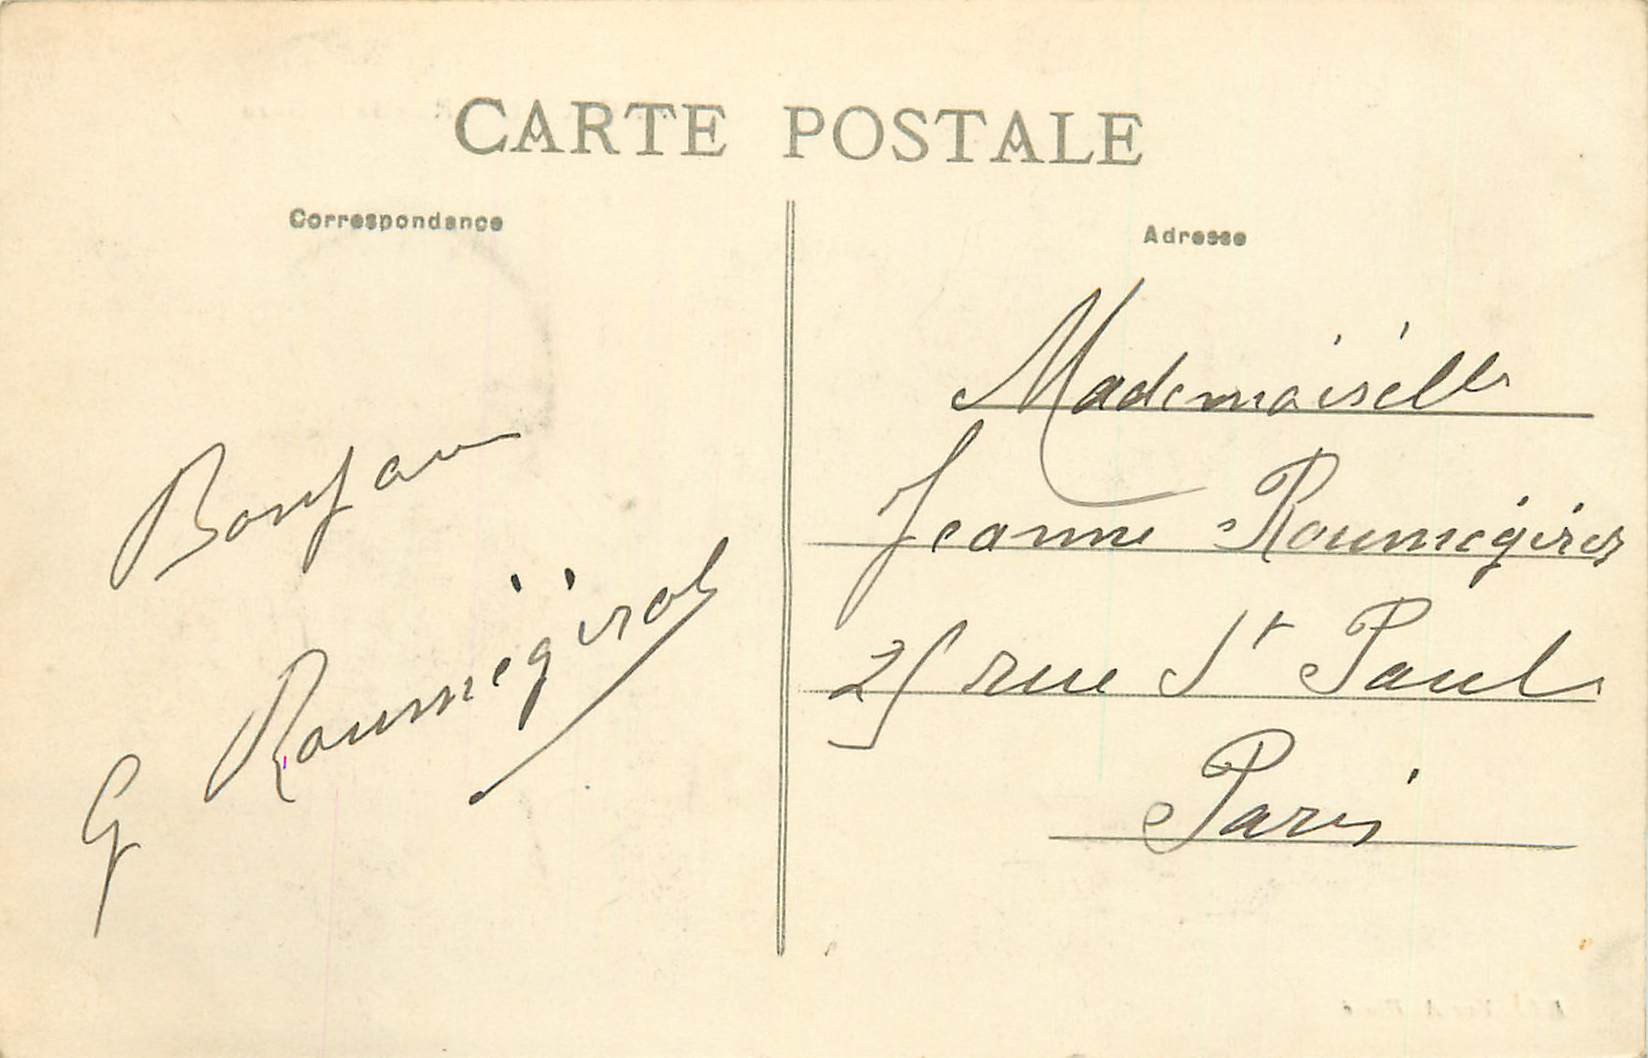 CARTE POSTALE
Correspondance
Adresse
Bonjour
G Roumégires
Mademoiselle
Jeanne Roumégires
25 rue St Paul
Paris